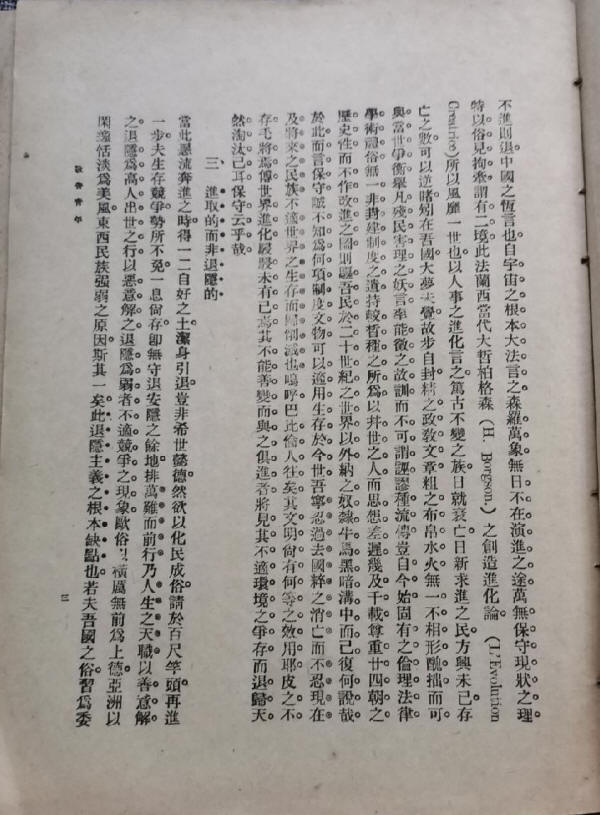 不進則退中國之恆言也自宇宙之根本大法言之森羅萬象無日不在演進之途萬無保守現狀之理
特以俗見拘牽謂有二境此法蘭西當代大哲柏格森（H. Borgson.）之創造進化論（L'Evolution
Creatrice）所以風靡一世也以人事之進化言之篤古不變之族日就衰亡日新求進之民方興未已存
亡之數可以逆睹矧在吾國大夢未覺故步自封精之政教文章粗之布帛水火無一不相形醜拙而可
與當世爭衡舉凡殘民害理之妖言率能徵之故訓而不可謂誣謬種流傳豈自今始固有之倫理法律
學術禮俗無一非封建制度之遺持較晳種之所爲以并世之人而思想差遲幾及千載尊重廿四朝之
歷史性而不作改進之圖則驅吾民於二十世紀之世界以外納之奴隸牛馬黑暗溝中而已復何說哉
於此而言保守誠不知爲何項制度文物可以適用生存於今世吾寧忍過去國粹之消亡而不忍現在
及將來之民族不適世界之生存而歸削滅也嗚呼巴比倫人往矣其文明尙有何等之效用耶皮之不
存毛將焉傅世界進化駸駸未有已焉其不能善變而與之俱進者將見其不適環境之爭存而退歸天
然淘汰已耳保守云乎哉
三　進取的而非退隱的
當此惡流奔進之時得一二自好之士潔身引退豈非希世懿德然欲以化民成俗請於百尺竿頭再進
一步夫生存競爭勢所不免一息尙存卽無守退安隱之餘地排萬難而前行乃人生之天職以善意解
之退隱爲高人出世之行以惡意解之退隱爲弱者不適競爭之現象歐俗以橫厲無前爲上德亞洲以
閑逸恬淡爲美風東西民族强弱之原因斯其一矣此退隱主義之根本缺點也若夫吾國之俗習爲委
敬告靑年
三